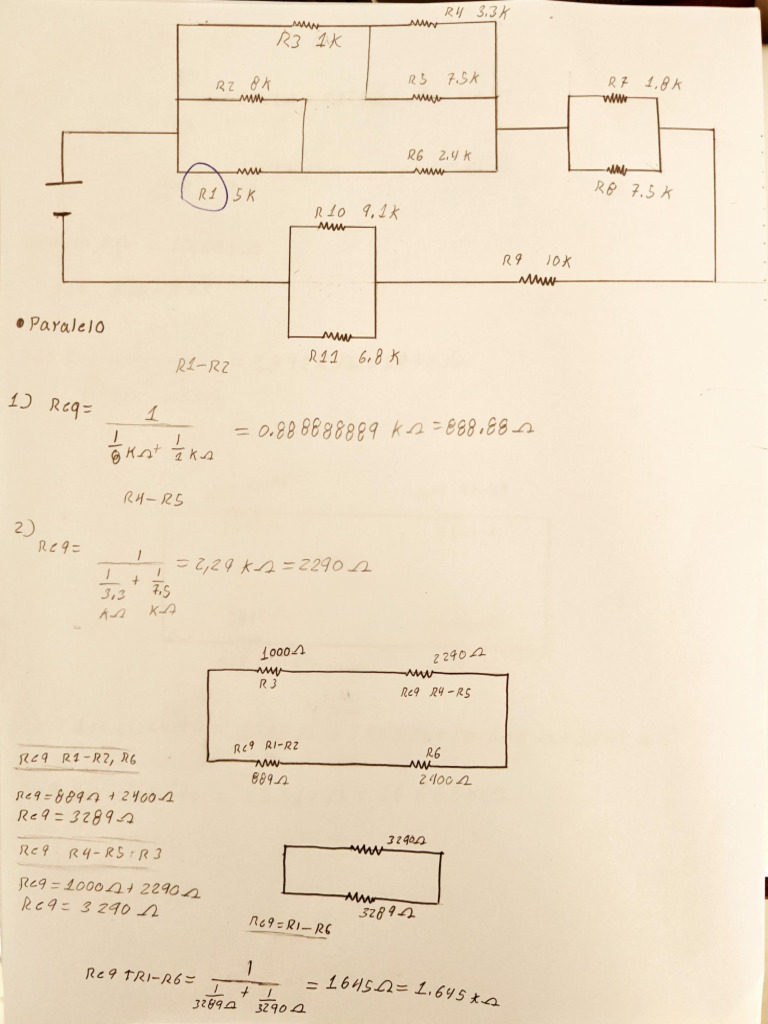 R4 3.3K
R3 1K
R2 8K
R5 7.5K
R7 1.8K
R6 2.4K
R1 5K
R8 7.5K
R10 9.1K
R9 10K
• Paralelo
R11 6.8K
R1-R2
1) Req = 1 / (1/8 KΩ + 1/1 KΩ) = 0.888888889 KΩ = 888.88Ω
R4-R5
2) Req = 1 / (1/3,3 KΩ + 1/7.5 KΩ) = 2,29 KΩ = 2290Ω
1000Ω
2290Ω
R3
Req R4-R5
Req R1-R2
R6
889Ω
2400Ω
Req R1-R2, R6
Req = 889Ω + 2400Ω
Req = 3289Ω
Req R4-R5, R3
Req = 1000Ω + 2290Ω
Req = 3290Ω
3290Ω
3289Ω
Req = R1-R6
Req TR1-R6 = 1 / (1/3289Ω + 1/3290Ω) = 1645Ω = 1.645 KΩ